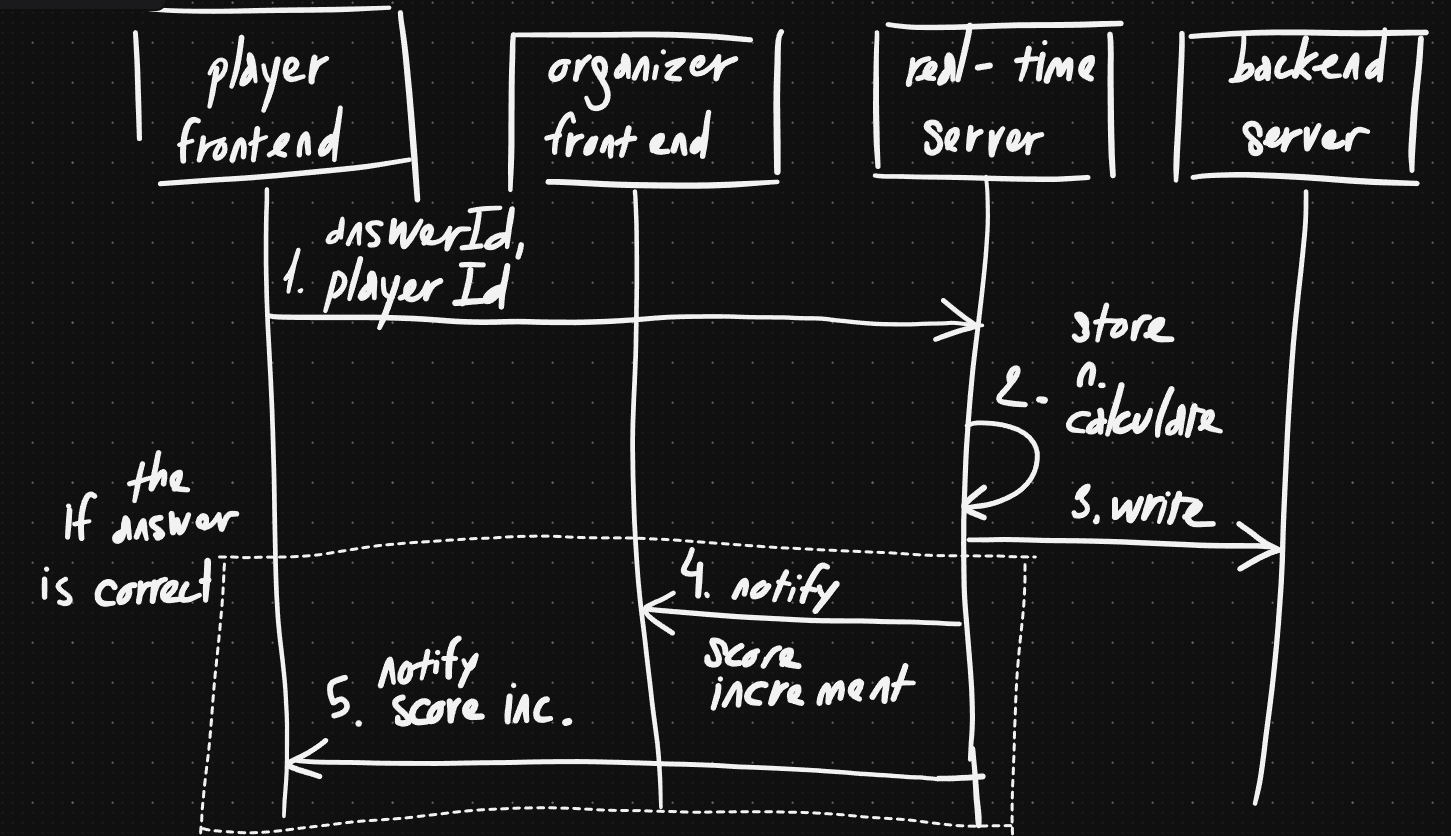 player
frontend
organizer
frontend
real-time
server
backend
server
answerId,
1. playerId
store
2. n.
calculate
3. write
the
If answer
is correct
4. notify
score
increment
notify
5. score inc.